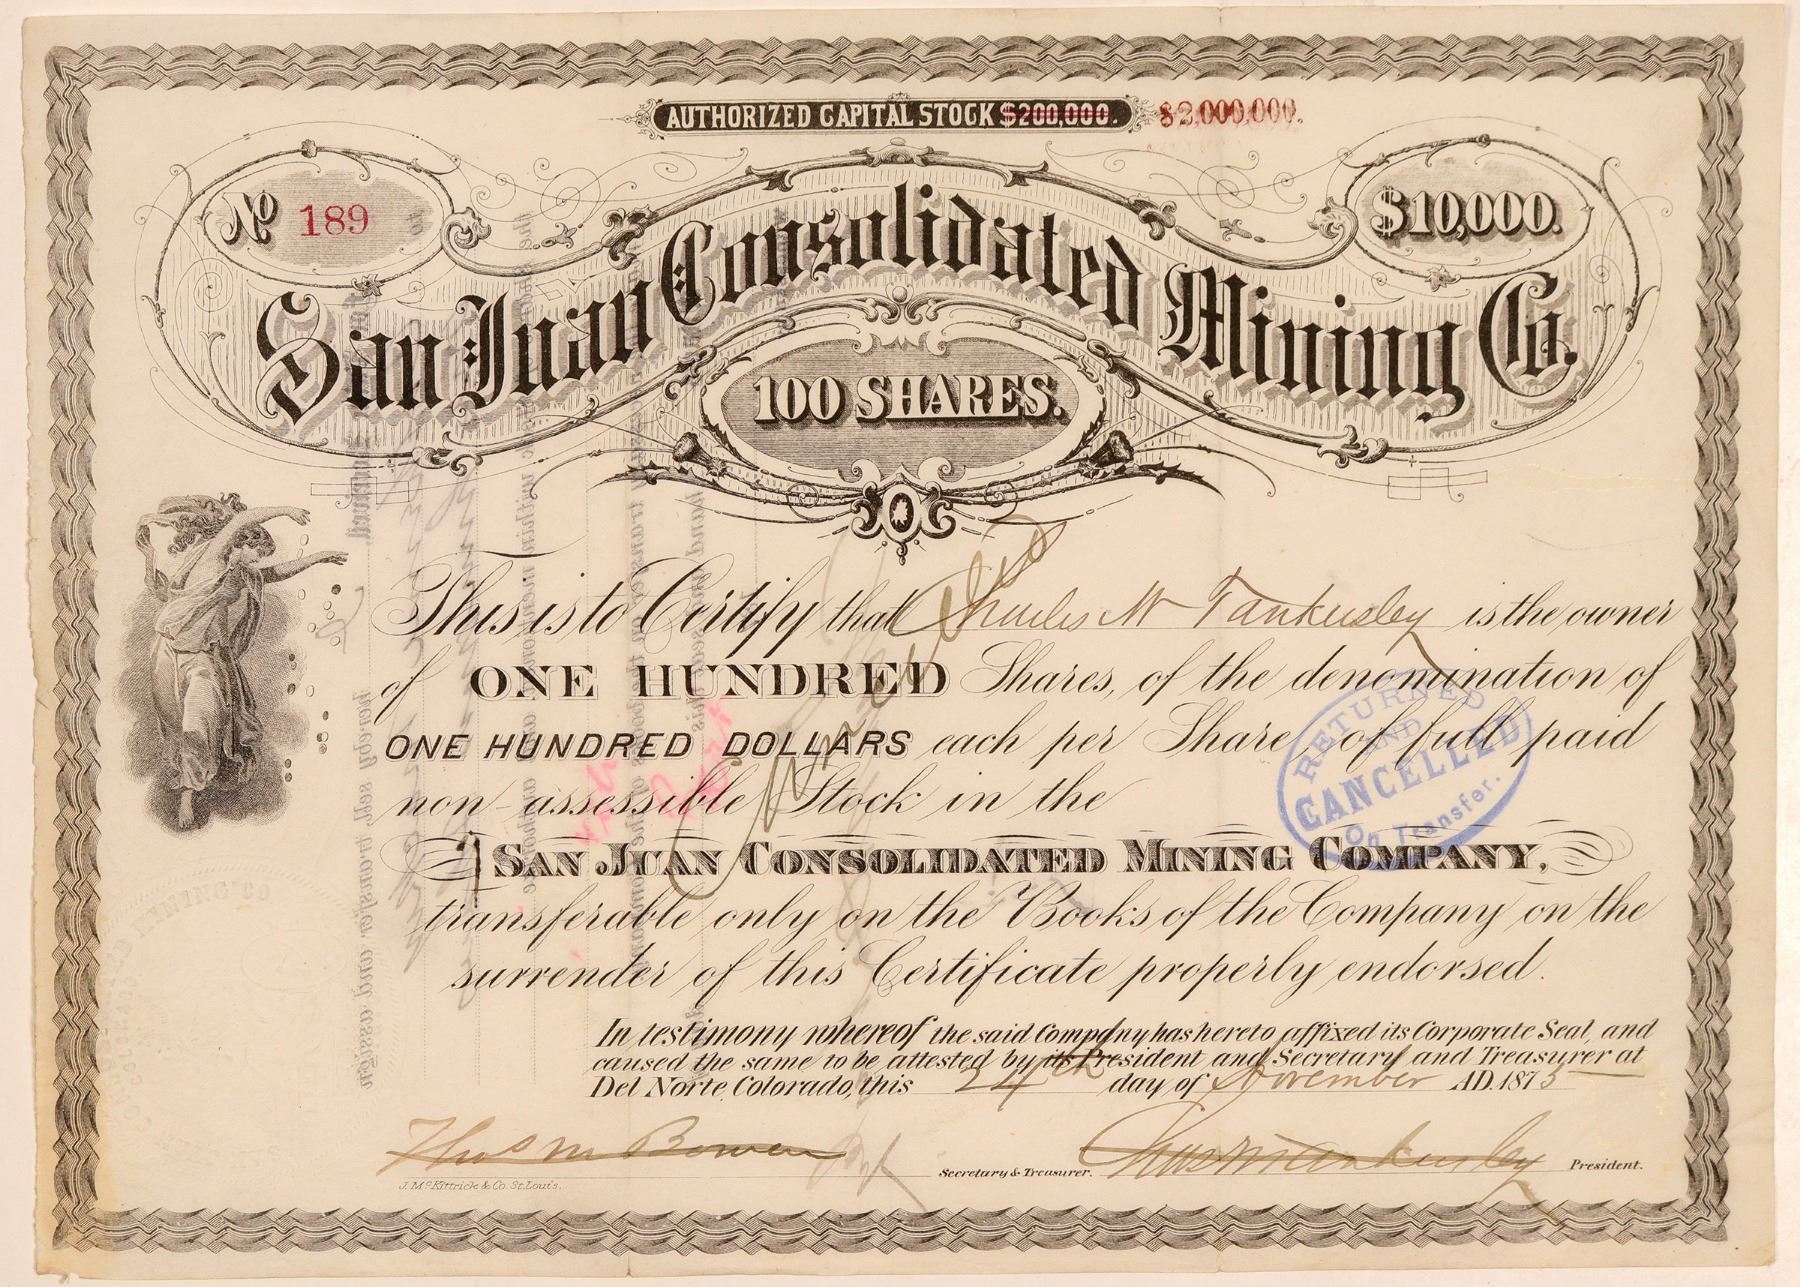 AUTHORIZED CAPITAL STOCK $200,000. $2,000,000.
No 189
$10,000.
San Juan Consolidated Mining Co.
100 SHARES.
This is to Certify that Charles M Tankersley is the owner
of ONE HUNDRED Shares, of the denomination of
ONE HUNDRED DOLLARS each per Share, of full paid
non-assessible Stock in the
SAN JUAN CONSOLIDATED MINING COMPANY,
transferable only on the Books of the Company on the
surrender of this Certificate properly endorsed.
Cancelled
RETURNED
AND
CANCELLED
On Transfer.
In testimony whereof the said Company has hereto affixed its Corporate Seal, and
caused the same to be attested by its President and Secretary and Treasurer at
Del Norte, Colorado, this 24th day of November A.D. 1875
Thos M Bowen Secretary & Treasurer. Chas M Tankersley President.
J. McKittrick & Co. St. Louis.